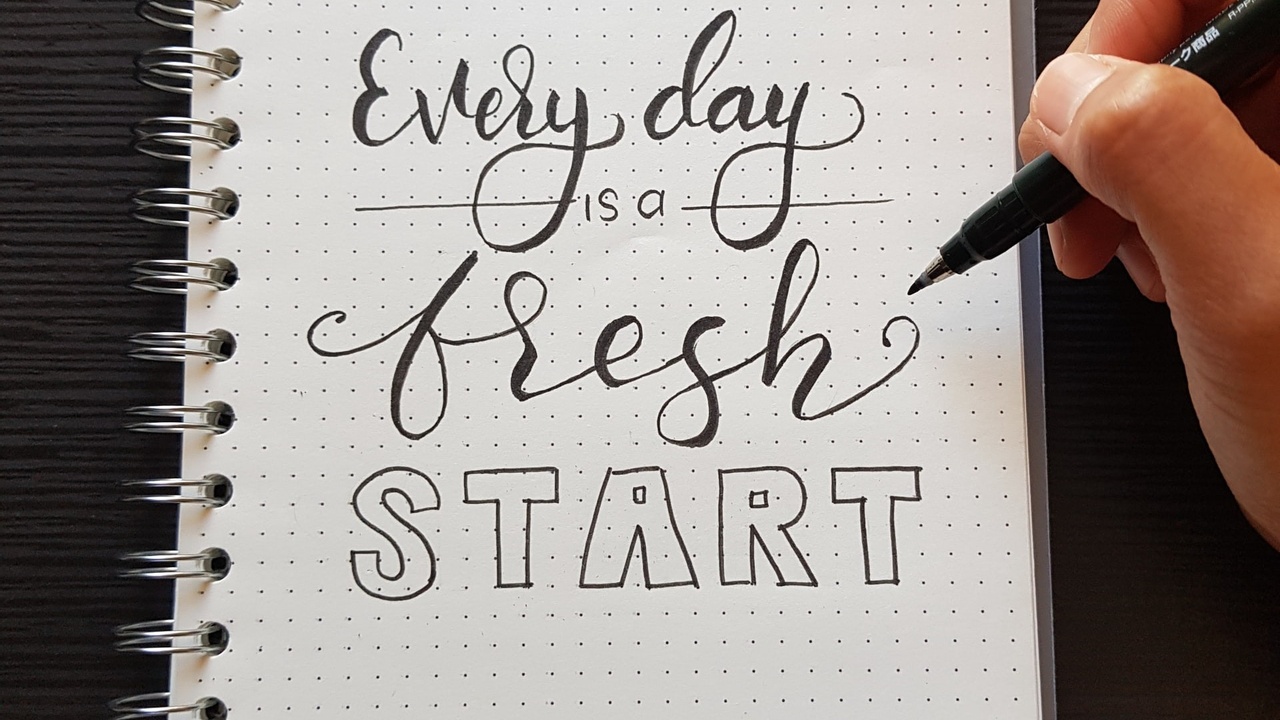 Every day
is a
fresh
START
ーク商品